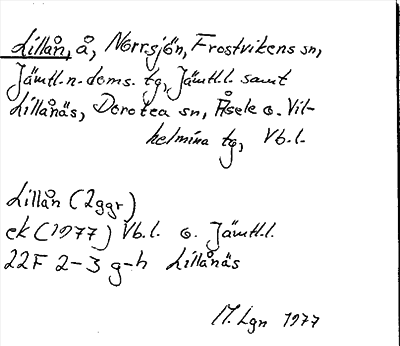 Lillån, å, Norrsjön, Frostvikens sn,
Jämtl.n.doms. tg, Jämtl.l. samt
Lillånäs, Dorotea sn, Åsele o. Vil-
helmina tg, Vb.l.
Lillån (2ggr)
ek (1977) Vb.l. o. Jämtl.l.
22F 2-3 g-h Lillånäs
M. Lgn 1977